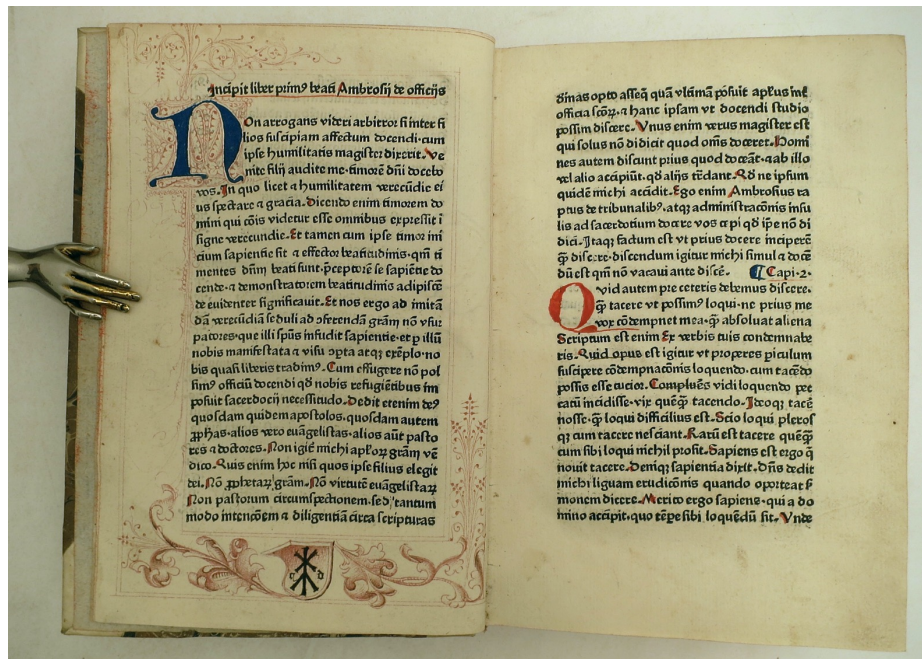 Incipit liber prim⁹ beati Ambrosij de officijs
NOn arrogans videri arbitror si inter fi
lios suscipiam affectum docendi·cum
ipse humilitatis magister dixerit·Ve
nite filij audite me·timorē dn̄i docebo
vos·In quo licet ⁊ humilitatem verecūdie ei
us spectare ⁊ gracia·dicendo enim timorem do
mini qui cōis videtur esse omnibus expressit ī
signe verecundie·Et tamen cum ipse timor ini
cium sapientie sit ⁊ effector beatitudinis·qm̄ ti
mentes dn̄m beati sunt·p̄ceptorē se sapiētie do
cende·⁊ demonstratorem beatitudinis adipiscē
de euidenter significauit·Et nos ergo ad imitā
dā verecūdiā seduli ad ꝯferendā grām nō vsur
patores·que illi sp̄us infudit sapientie·et ꝑ illū
nobis manifestata ⁊ visu ꝯpta atqꝫ exēplo·vo
bis quasi liberis tradim⁹·Cum effugere nō pos
sim⁹ officiū docendi qd̄ nobis refugiētibus im
posuit sacerdocij necessitudo·Dedit etenim de⁹
quosdam quidem apostolos·quosdam autem
ꝓphas·alios vero euāgelistas·alios aūt pasto
res ⁊ doctores·Non igit̄ michi apl'oꝝ grām vē
dico·Quis enim hoc nisi quos ipse filius elegit
dei·Nō ꝓphetaꝝ grām·Nō virtutē euāgelistaꝝ
Non pastorum circumspectionem·sed tantum
modo intencōem ⁊ diligentiā circa scripturas
diuinas opto asseq̄ quā vltimā posuit apl'us inť
officia scōꝝ·⁊ hanc ipsam vt docendi studio
possim discere·Vnus enim verus magister est
qui solus nō didicit quod om̄s doceret·Homi
nes autem discunt prius quod doceāt·⁊ ab illo
vel alio accipiūt·qd̄ alijs tradant·Qd̄ ne ipsum
quidē michi accidit·Ego enim Ambrosius ra
ptus de tribunalib⁹·atqꝫ administracōnis insu
lis ad sacerdotium docere vos cepi qd̄ ip̄e nō di
dici·Itaqꝫ factum est vt prius docere inciperē
q̄ꝫ discere·discendum igitur michi simul ⁊ docē
dū est qm̄ nō vacaui ante discē· Capi·2·
Quid autem pre ceteris debemus discere·
q̄ꝫ tacere vt possim⁹ loqui·ne prius me
vox cōdempnet mea·q̄ꝫ absoluat aliena
Scriptum est enim Ex verbis tuis condemnabe
ris·Quid opus est igitur vt properes ꝑiculum
suscipere cōdempnacōnis loquendo·cum tacēdo
possis esse tucior·Complures vidi loquendo pec
catū incidisse·vix quēq̄ꝫ tacendo·Ideoqꝫ tacē
nosse·q̄ꝫ loqui difficilius est·Scio loqui pleros
qꝫ cum tacere nesciant·Rarū est tacere quēq̄ꝫ
cum sibi loqui nichil prosit·Sapiens est ergo q̄
nouit tacere·Deniqꝫ sapientia dixit·Dn̄s dedit
michi liguam erudicōnis quando oporteat s̄
monem dicere·Merito ergo sapiens·qui a do
mino accipit·quo tēpe sibi loquēdū sit·Vnde